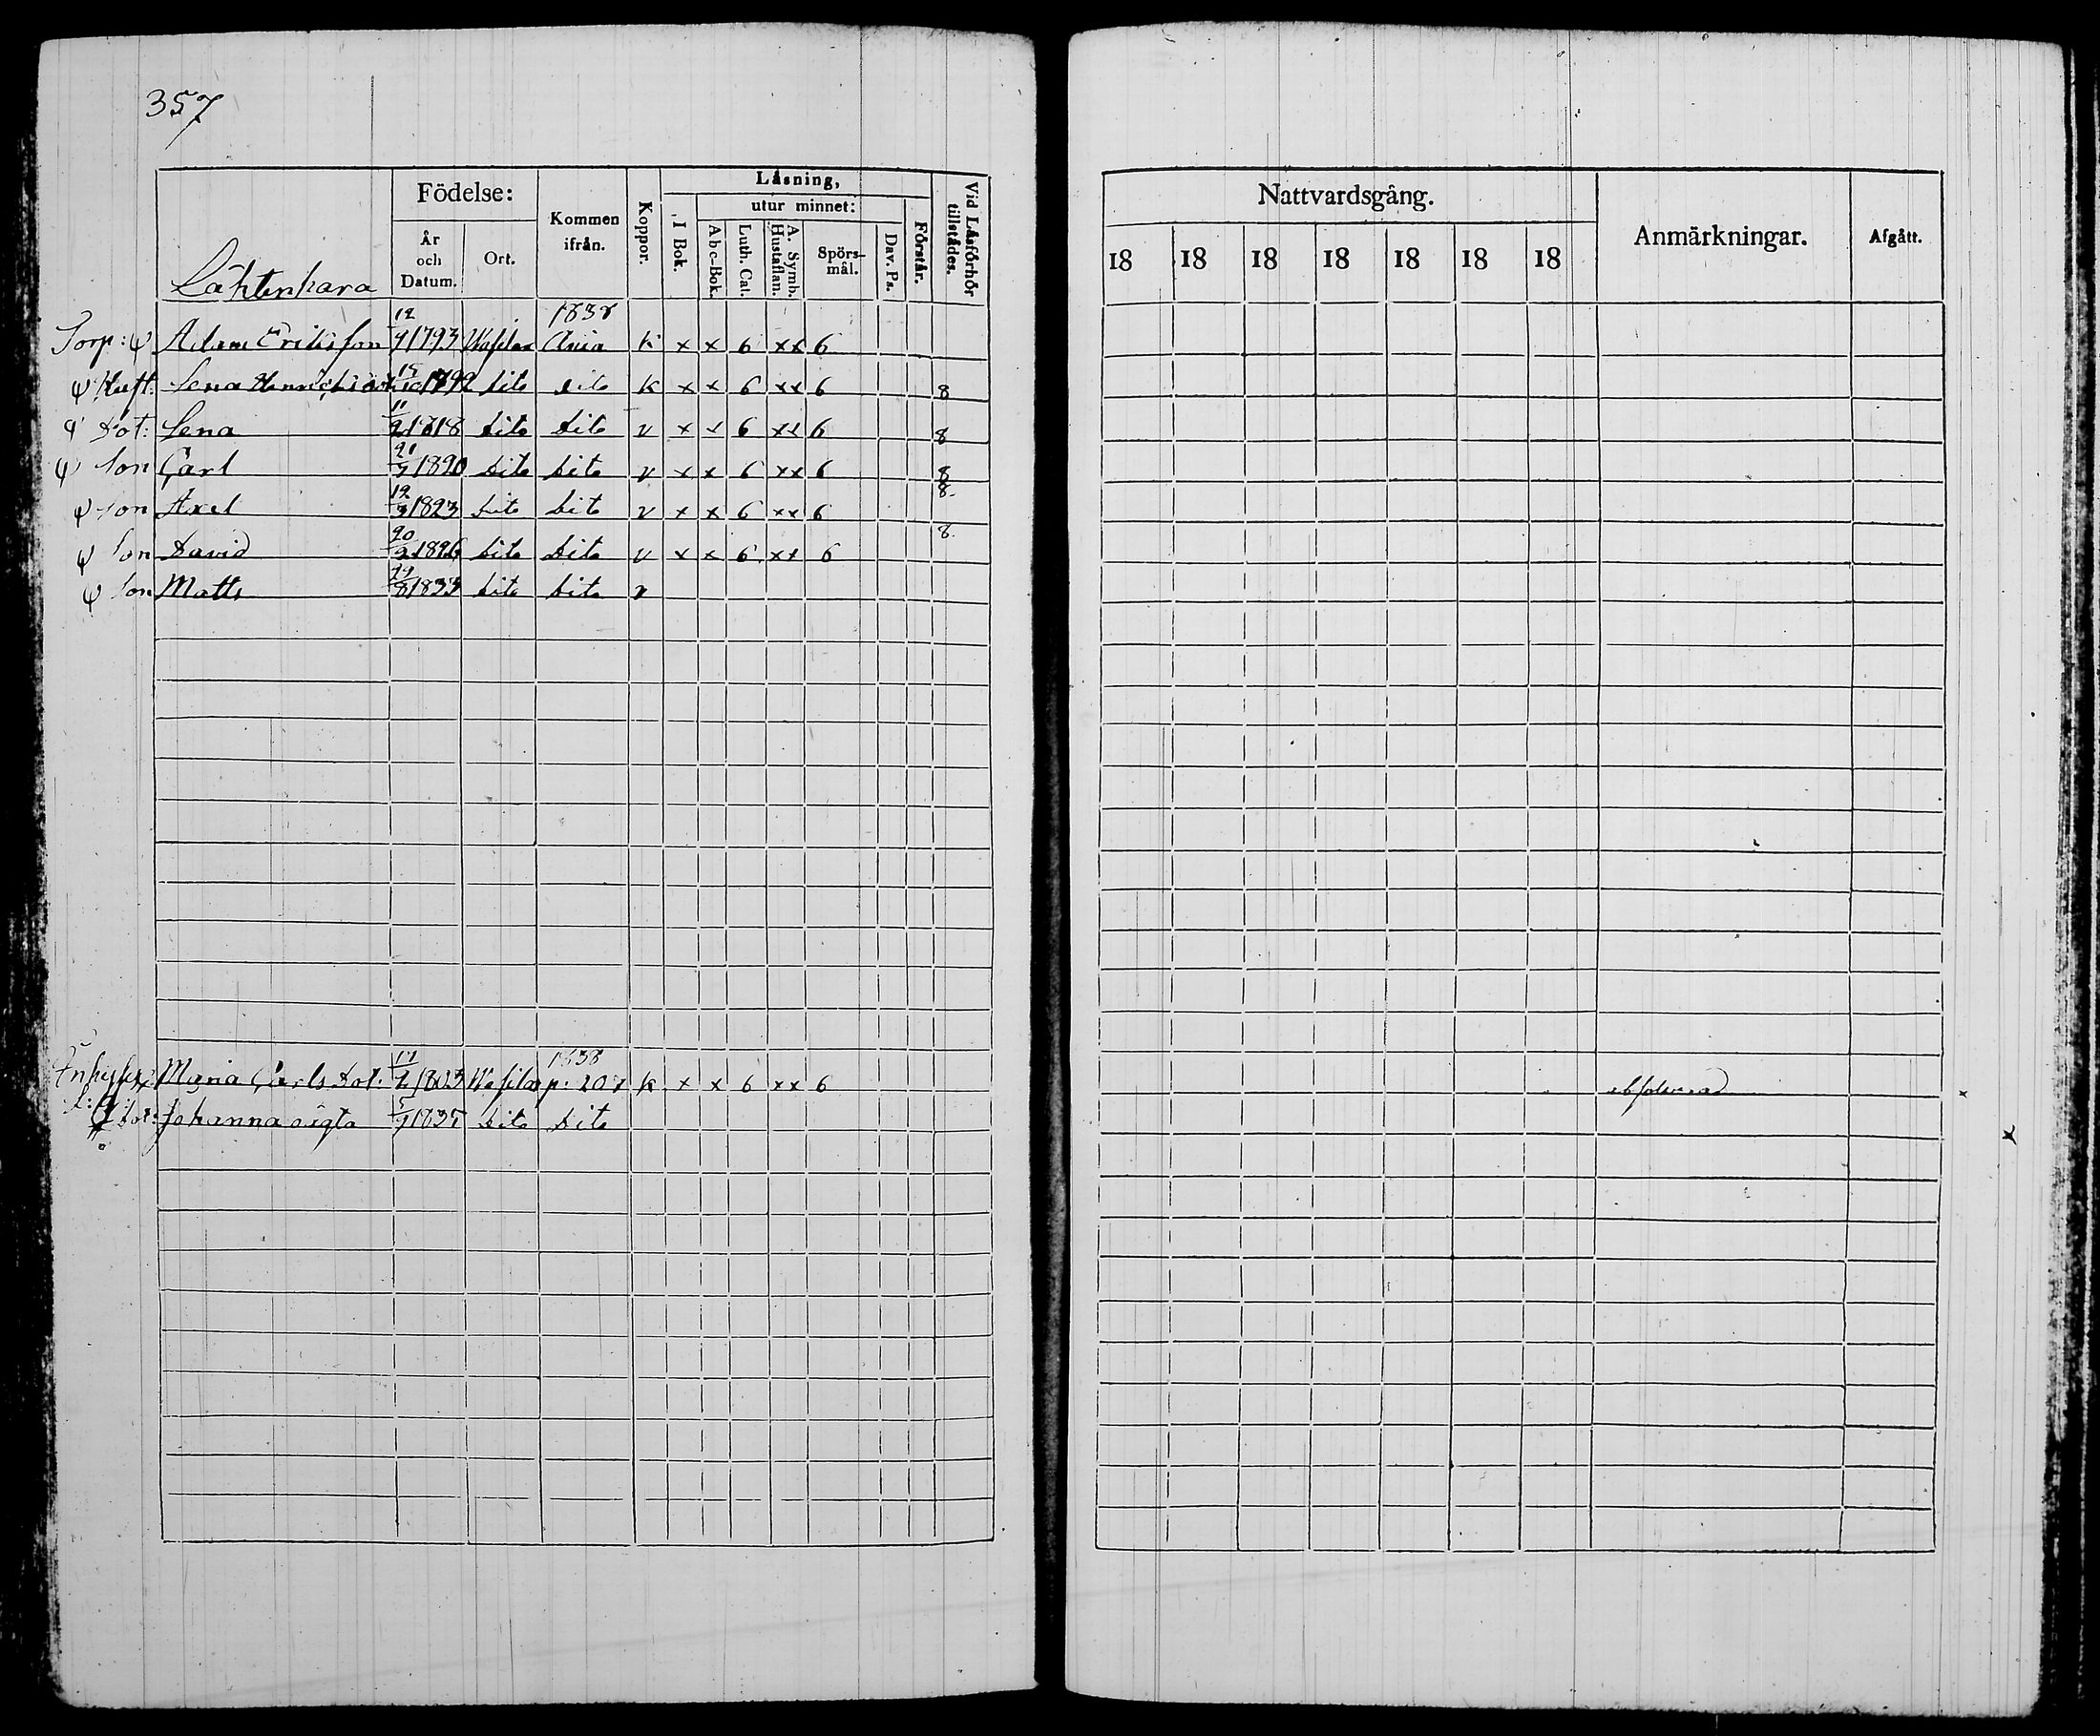 357
Födelse:
Kommen ifrån.
Koppor.
Låsning,
utur minnet:
I Bok.
Abc-Bok.
Luth. Cat.
A. Symb. Hustaflan.
Spörs-mål.
Dav. Ps.
Förstår.
Vid Låsförhör tillstådes.
År och Datum.
Ort.
Lähtenkara
1838
Torp: Adam Ericsson 12/9 1793 K x x 6 xx 6
Hust: Lena Henrics dot 15/10 1799 dito dito K x x 6 xx 6 8
Dot: Lena 11/2 1818 dito dito v x x 6 xx 6 8
Son Carl 21/3 1820 dito dito v x x 6 xx 6 8
Son Axel 12/3 1823 dito dito v x x 6 xx 6 8.
Son David 20/2 1826 dito dito v x x 6 xx 6 8.
Son Matts 29/8 1833 dito dito v
1838
Carls Dot: 1803 p: 207 K x x 6 xx 6
dot: Johanna oägta 5/9 1835 dito dito
Nattvardsgång.
Anmärkningar.
Afgått.
18 18 18 18 18 18 18
absolverad x
x